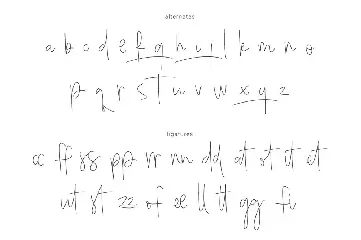 alternates
a b c d e f g h i j l k m n o
p q r s t u v w x y z
ligatures
ff ss pp rr nn dd at st it et
ut st zz of ll tt gg fi